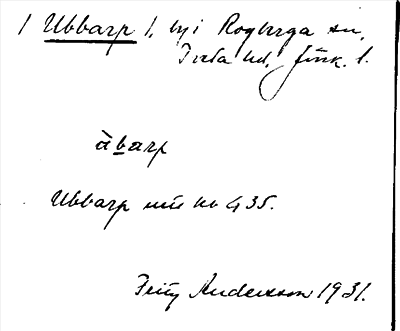 1 Ubbarp 1, by i Rogberga sn,
Tveta hd, Jönk. l.
àbarp
Ubbarp mtl nr 435.
Fritz Andersson 1931.